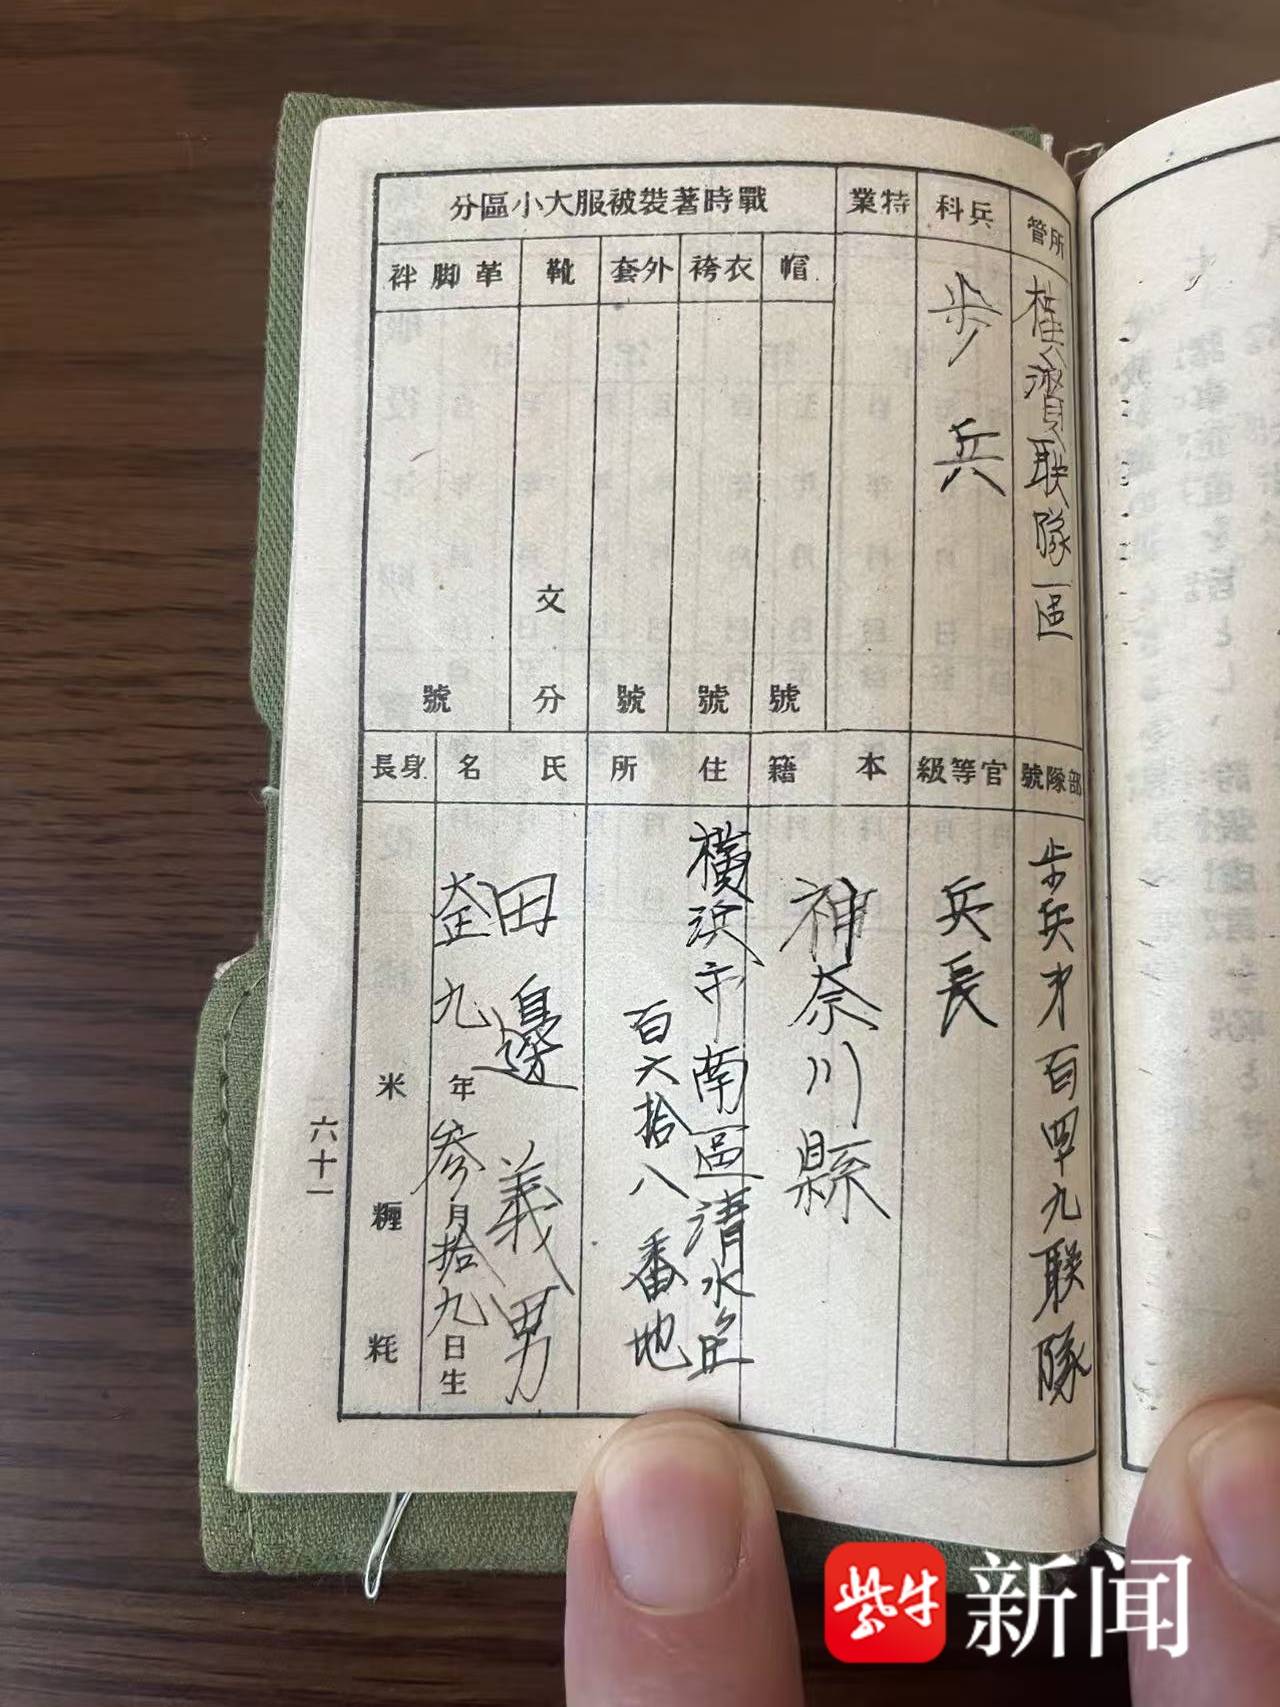 所管
横濱联隊區
兵科
歩兵
特業
戰時著裝被服大小區分
帽
號
衣袴
號
外套
號
靴
文
分
革脚絆
號
部隊號
歩兵才百四九联隊
官等級
兵長
本籍
神奈川縣
住所
横浜市南區清水丘
百六拾八番地
氏名
田邊義男
大正九年参月拾九日生
身長
米
糎
粍
六十一
紫牛
新闻